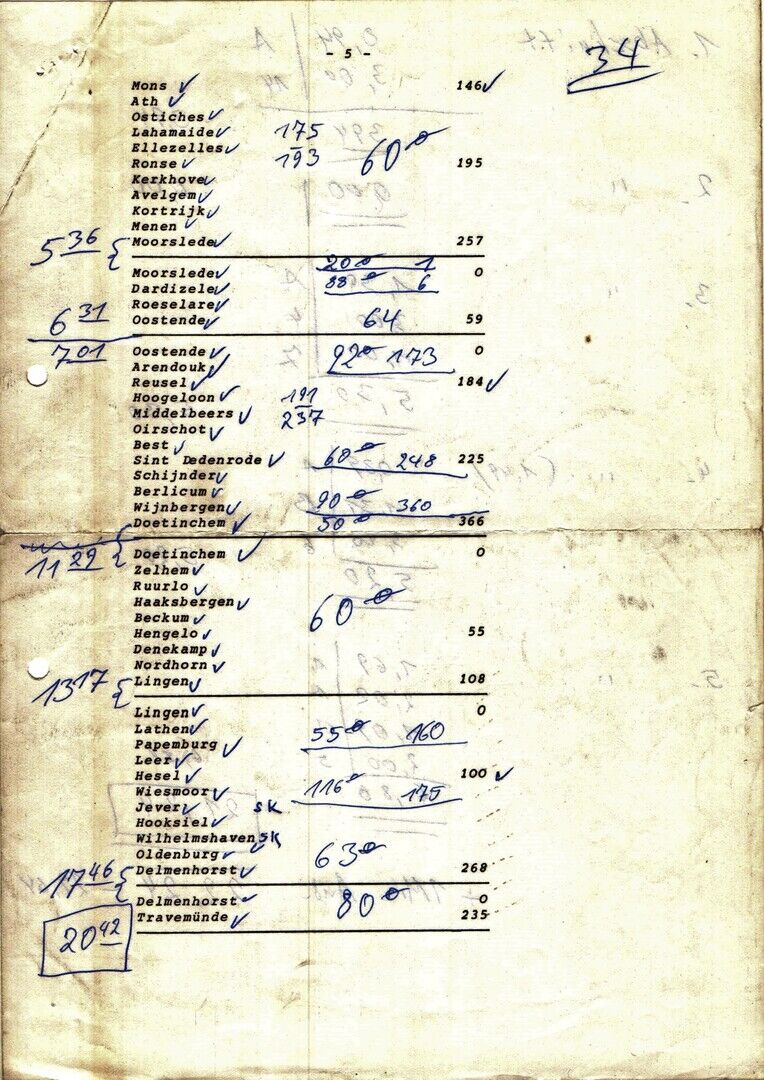 - 5 -
34
Mons ✓ 146✓
Ath ✓
Ostiches ✓
Lahamaide ✓ 175
Ellezelles ✓ 193 60
Ronse ✓ 195
Kerkhove ✓
Avelgem ✓
Kortrijk ✓
Menen ✓
5 36 { Moorslede ✓ 257
20 1
Moorslede ✓ 88 6 0
Dardizele ✓
Roeselare ✓
6 31 Oostende ✓ 64 59
7 01 Oostende ✓ 92 173 0
Arendouk ✓
Reusel ✓ 184 ✓
Hoogeloon ✓ 191
Middelbeers ✓ 237
Oirschot ✓
Best ✓
Sint Dedenrode ✓ 60 248 225
Schijnder ✓
Berlicum ✓
Wijnbergen ✓ 90 360
Doetinchem ✓ 50 366
11 29 { Doetinchem ✓ 0
Zelhem ✓
Ruurlo ✓
Haaksbergen ✓
Beckum ✓ 60
Hengelo ✓ 55
Denekamp ✓
Nordhorn ✓
13 17 { Lingen ✓ 108
Lingen ✓ 0
Lathen ✓ 55 160
Papemburg ✓
Leer ✓
Hesel ✓ 100 ✓
Wiesmoor ✓ 116 175
Jever ✓ SK
Hooksiel ✓
Wilhelmshaven SK
Oldenburg ✓ 63
17 46 { Delmenhorst ✓ 268
Delmenhorst ✓ 80 0
Travemünde ✓ 235
20 42